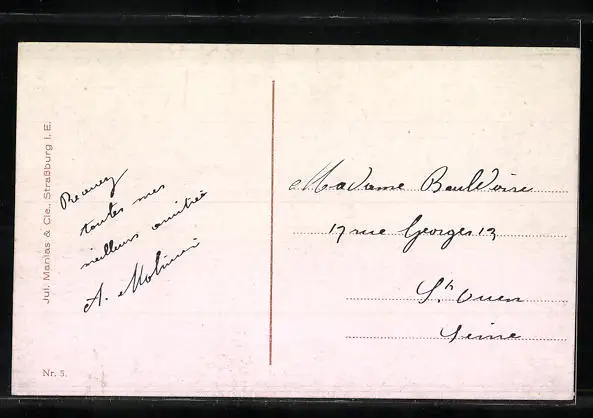 Jul. Manias & Cie., Straßburg i. E.
Recevez
toutes mes
meilleurs amitiés
A.
Madame
17 rue Georges 13
St. Ouen
Seine
Nr. 5.